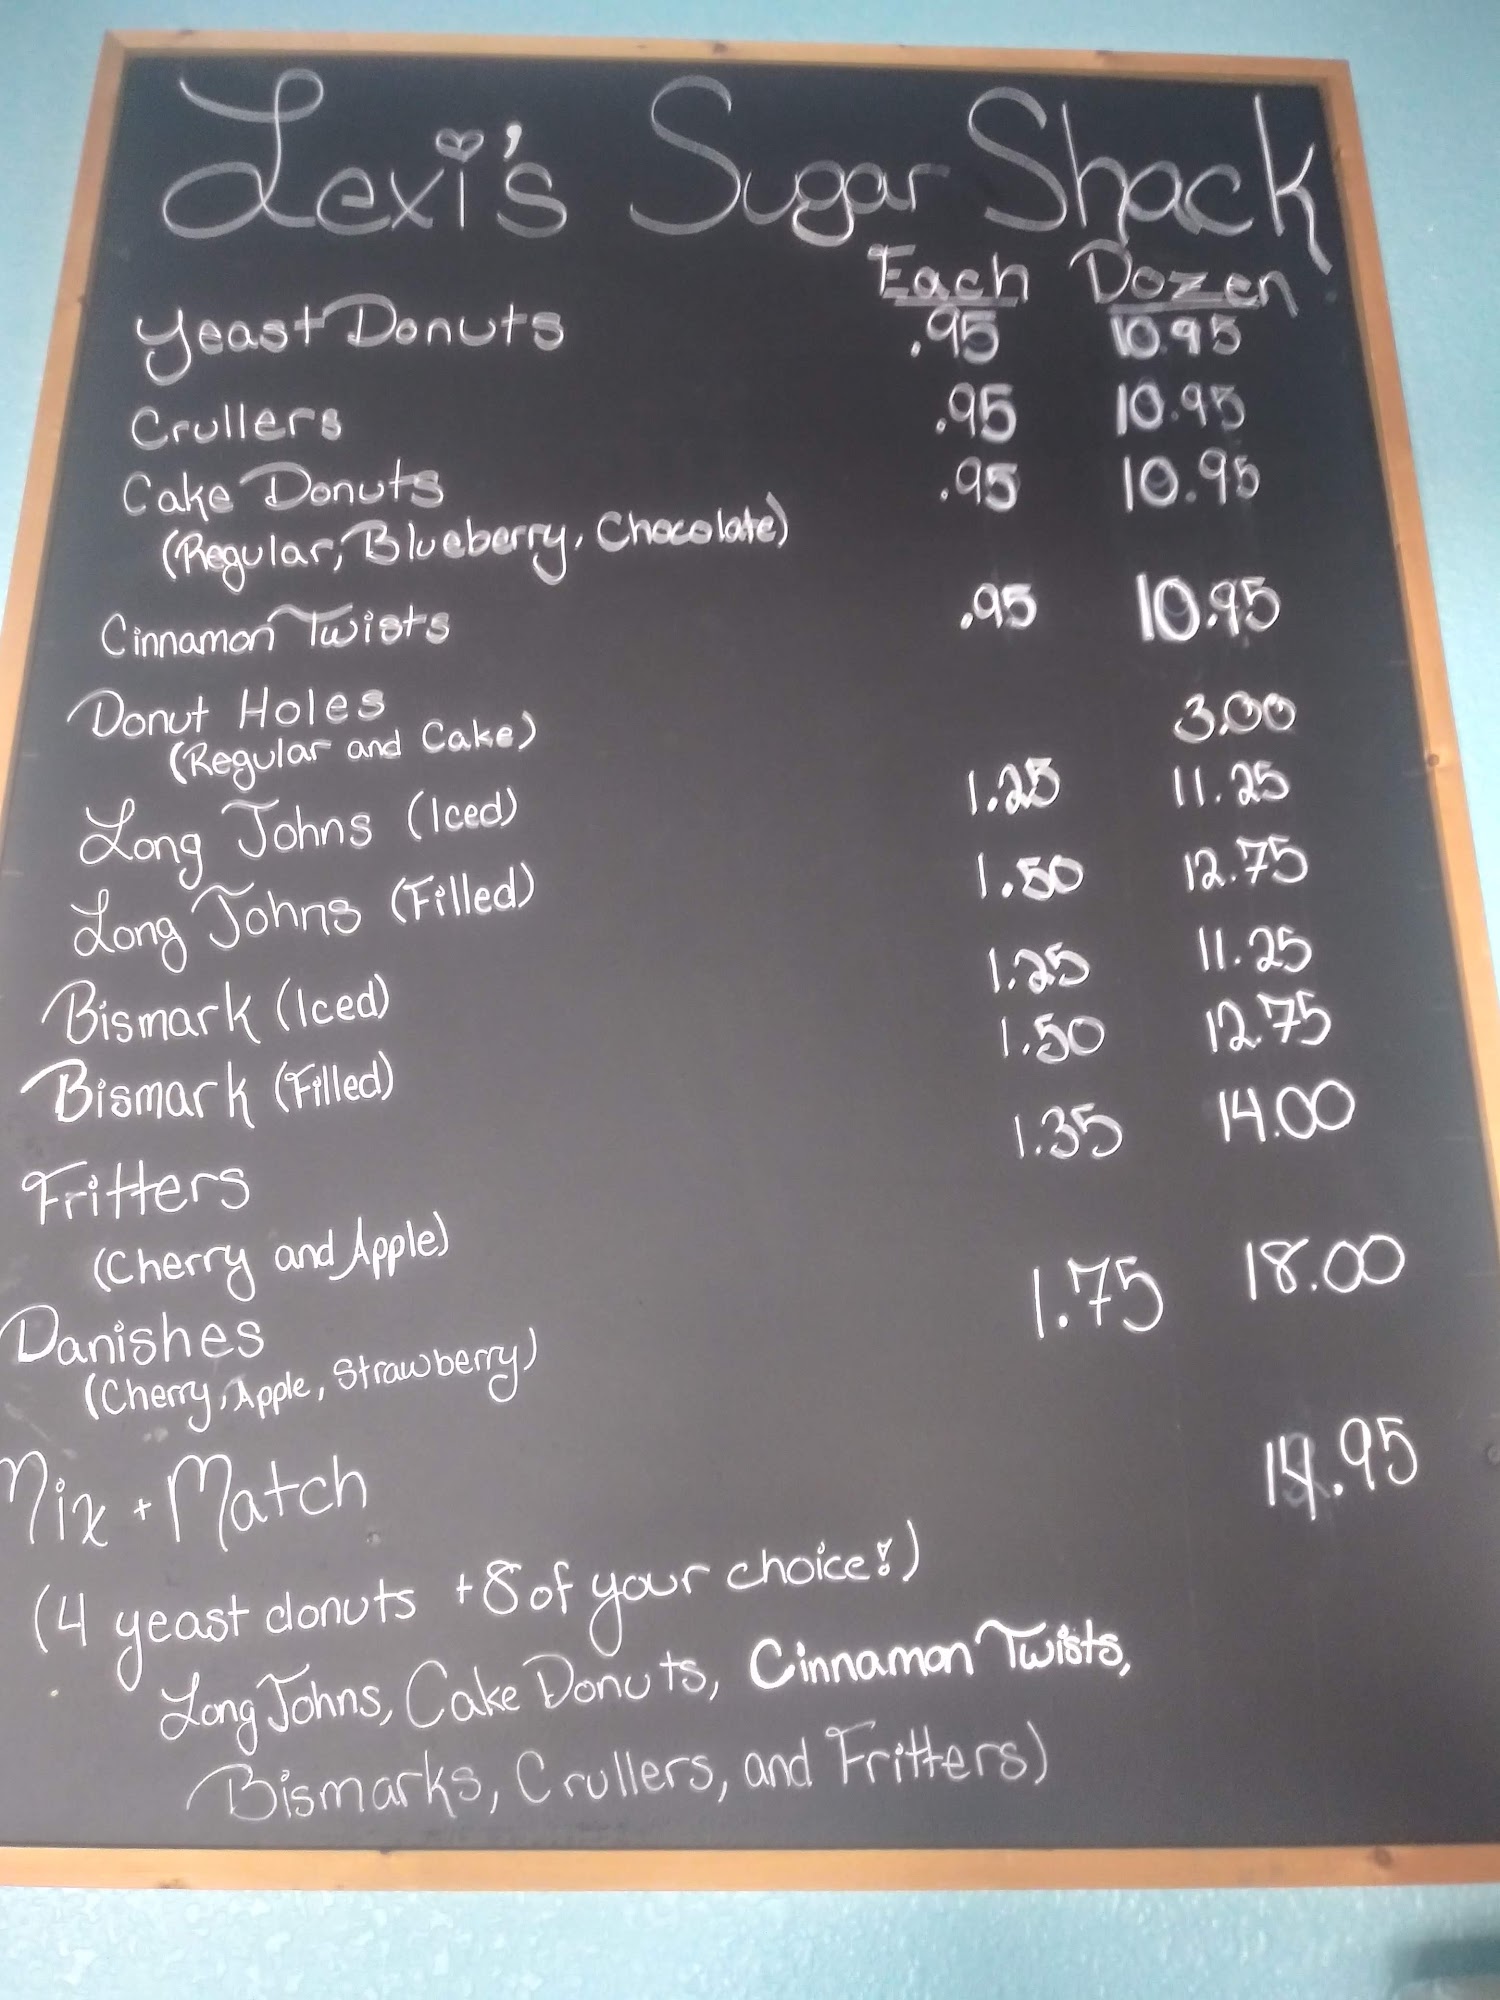 Lexi's Sugar Shack
Each Dozen
Yeast Donuts .95 10.95
Crullers .95 10.95
Cake Donuts .95 10.95
(Regular, Blueberry, Chocolate)
Cinnamon Twists .95 10.95
Donut Holes 3.00
(Regular and Cake)
Long Johns (Iced) 1.25 11.25
Long Johns (Filled) 1.50 12.75
Bismark (Iced) 1.25 11.25
Bismark (Filled) 1.50 12.75
Fritters 1.35 14.00
(Cherry and Apple)
Danishes 1.75 18.00
(Cherry, Apple, Strawberry)
Mix + Match 14.95
(4 yeast donuts +8 of your choice!)
Long Johns, Cake Donuts, Cinnamon Twists,
Bismarks, Crullers, and Fritters)